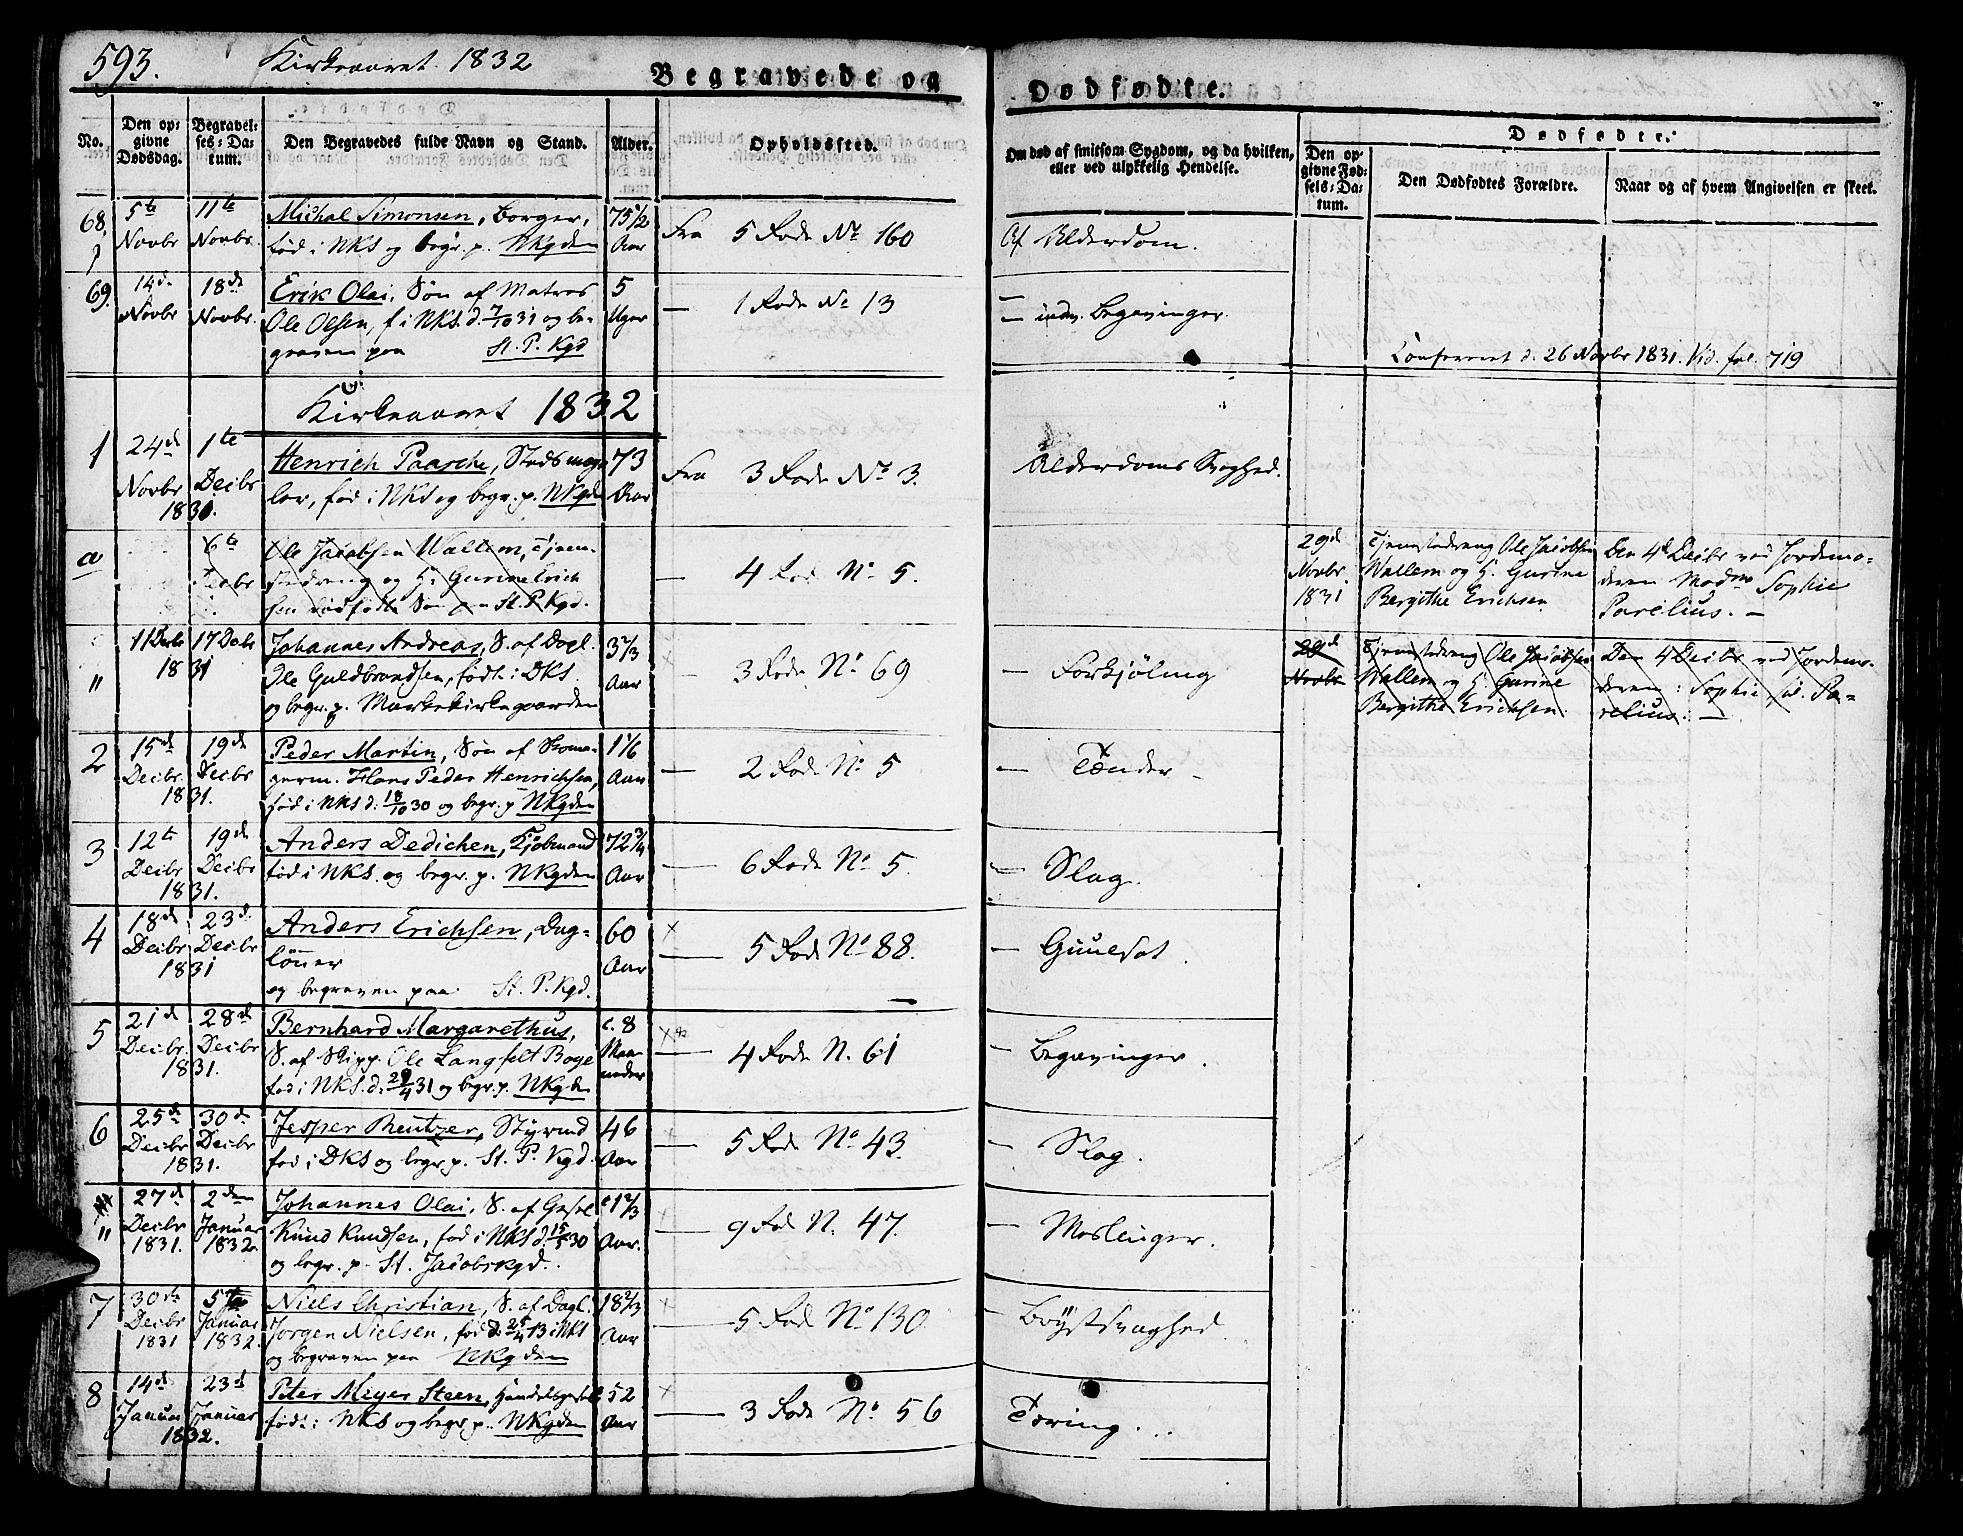 593.
Kirkeaaret 1832
Begravede og
Dødfødte.
No.
Den opgivne Dødsdag.
Begravelses-Datum.
Den Begravedes fulde Navn og Stand.
Alder.
Opholdssted.
Om død af smitsom Sygdom, og da hvilken, eller ved ulykkelig Hendelse.
Dødfødte.
Den opgivne Fødsels-Datum.
Den Dødfødtes Forældre.
Naar og af hvem Angivelsen er skeet.
68,
5te Novbr
11te Novbr.
Michal Simonsen, Borger,
fød i NKS og begr. p. NKgden
75 1/2 Aar
Fra 5 Rode No 160
Af Alderdom.
69.
14de Novbr
18de Novbr.
Erik Olai, Søn af Matros
Ole Olsen, f. i NKS. d. 7/10 31 og be-
graven paa St. P. Kgd
5 Uger
— 1 Rode No 13
— indv. Begavinger.
Confereret d. 26 Novbr 1831. Vid. fol. 719
Kirkeaaret 1832
1
24d Novbr
1te Decbr
1831.
Henrich Paasche, Stadsmæg-
ler, fød i NKS og begr. p. NKgd
73 Aar
Fra 3 Rode No 3.
Alderdoms Svaghed.
a
6te Decbr
Ole Jacobsen Wallem, Tjene-
stedreng og H. Gurine Erich
sen dødfødte Søn paa St. P. Kgd.
— 4 Rod No 5.
29d Novbr 1831
Tjenestedreng Ole Jacobsen
Wallem og H. Gurine
Bergithe Erichsen
Den 4d Decbr ved Jordemo-
deren Madme Sophie
Parelius. —
"
11 Decbr 17 Decbr
1831
Johannes Andreas, S. af Dagl.
Ole Guldbrandsen, født i DKS.
og begr. p. Markekirkegaarden
3 2/3 Aar
— 3 Rode No 69
— Forkjøling
29d Novbr
Tjenestedreng Ole Jacobsen
Wallem og H. Gurine
Bergithe Erichsen.
Den 4 Decbr ved Jordemo-
deren: Sophie sl. Pa-
relius. —
2
15de Decbr.
19de Decbr
1831.
Peder Martin, Søn af Skoma-
germ. Hans Peder Henrichsen,
fød i NKS d: 18/10 30 og begr. p NKgden
1 1/6 Aar
— 2 Rode No 5
— Tænder —
3
12te Decbr
19de Decbr
1831.
Anders Dedichen, Kjøbmand
fød i NKS. og begr. p. NKgden
72 3/4 Aar
— 6 Rode No 5.
— Slag.
4
18de Decbr
23d. Decbr
1831
Anders Erichsen, Dag-
lønner
og begraven paa St. P. Kgd.
60 Aar
— 5 Rode No 88.
— Guulsot.
5
21de Decbr
28de Decbr
1831.
Bernhard Margarethus,
S. af Skipp. Ole Langfelt Boye
fød i NKS. d. 29/4 31 og begr. p. NKgden
c. 8 Maaneder
— 4 Rode N. 61
— Begavinger.
6
25de Decbr
30de Decbr
1831.
Jesper Reutzer, Styrmd
fød i DKS og begr. p. St. P. Kgd.
46 Aar
— 5 Rod No 43.
— Slag.
"
27d Decbr 1831.
2den Januar 1832.
Johannes Olai, S. af
Knud Knudsen, fød i NKS d. 15/5 30
og begr. p. St. Jacobskgd.
c 1 2/3 Aar.
— 9 Rode N. 47.
— Meslinger.
7
30de Decbr 1831
5te Januar 1832.
Niels Christian, S. af Dagl.
Jørgen Nielsen, fød d. 25/4 13 i NKS
og begraven paa NKgden
18 2/3 Aar
— 5 Rode No 130.
— Brÿstsvaghed.
8
14de Januar
23d Januar
1832.
Peter Meyer Steen, Handelsgesel
født i NKS og begr. p. NKgden
52 Aar
— 3 Rode No. 56
Tæring...